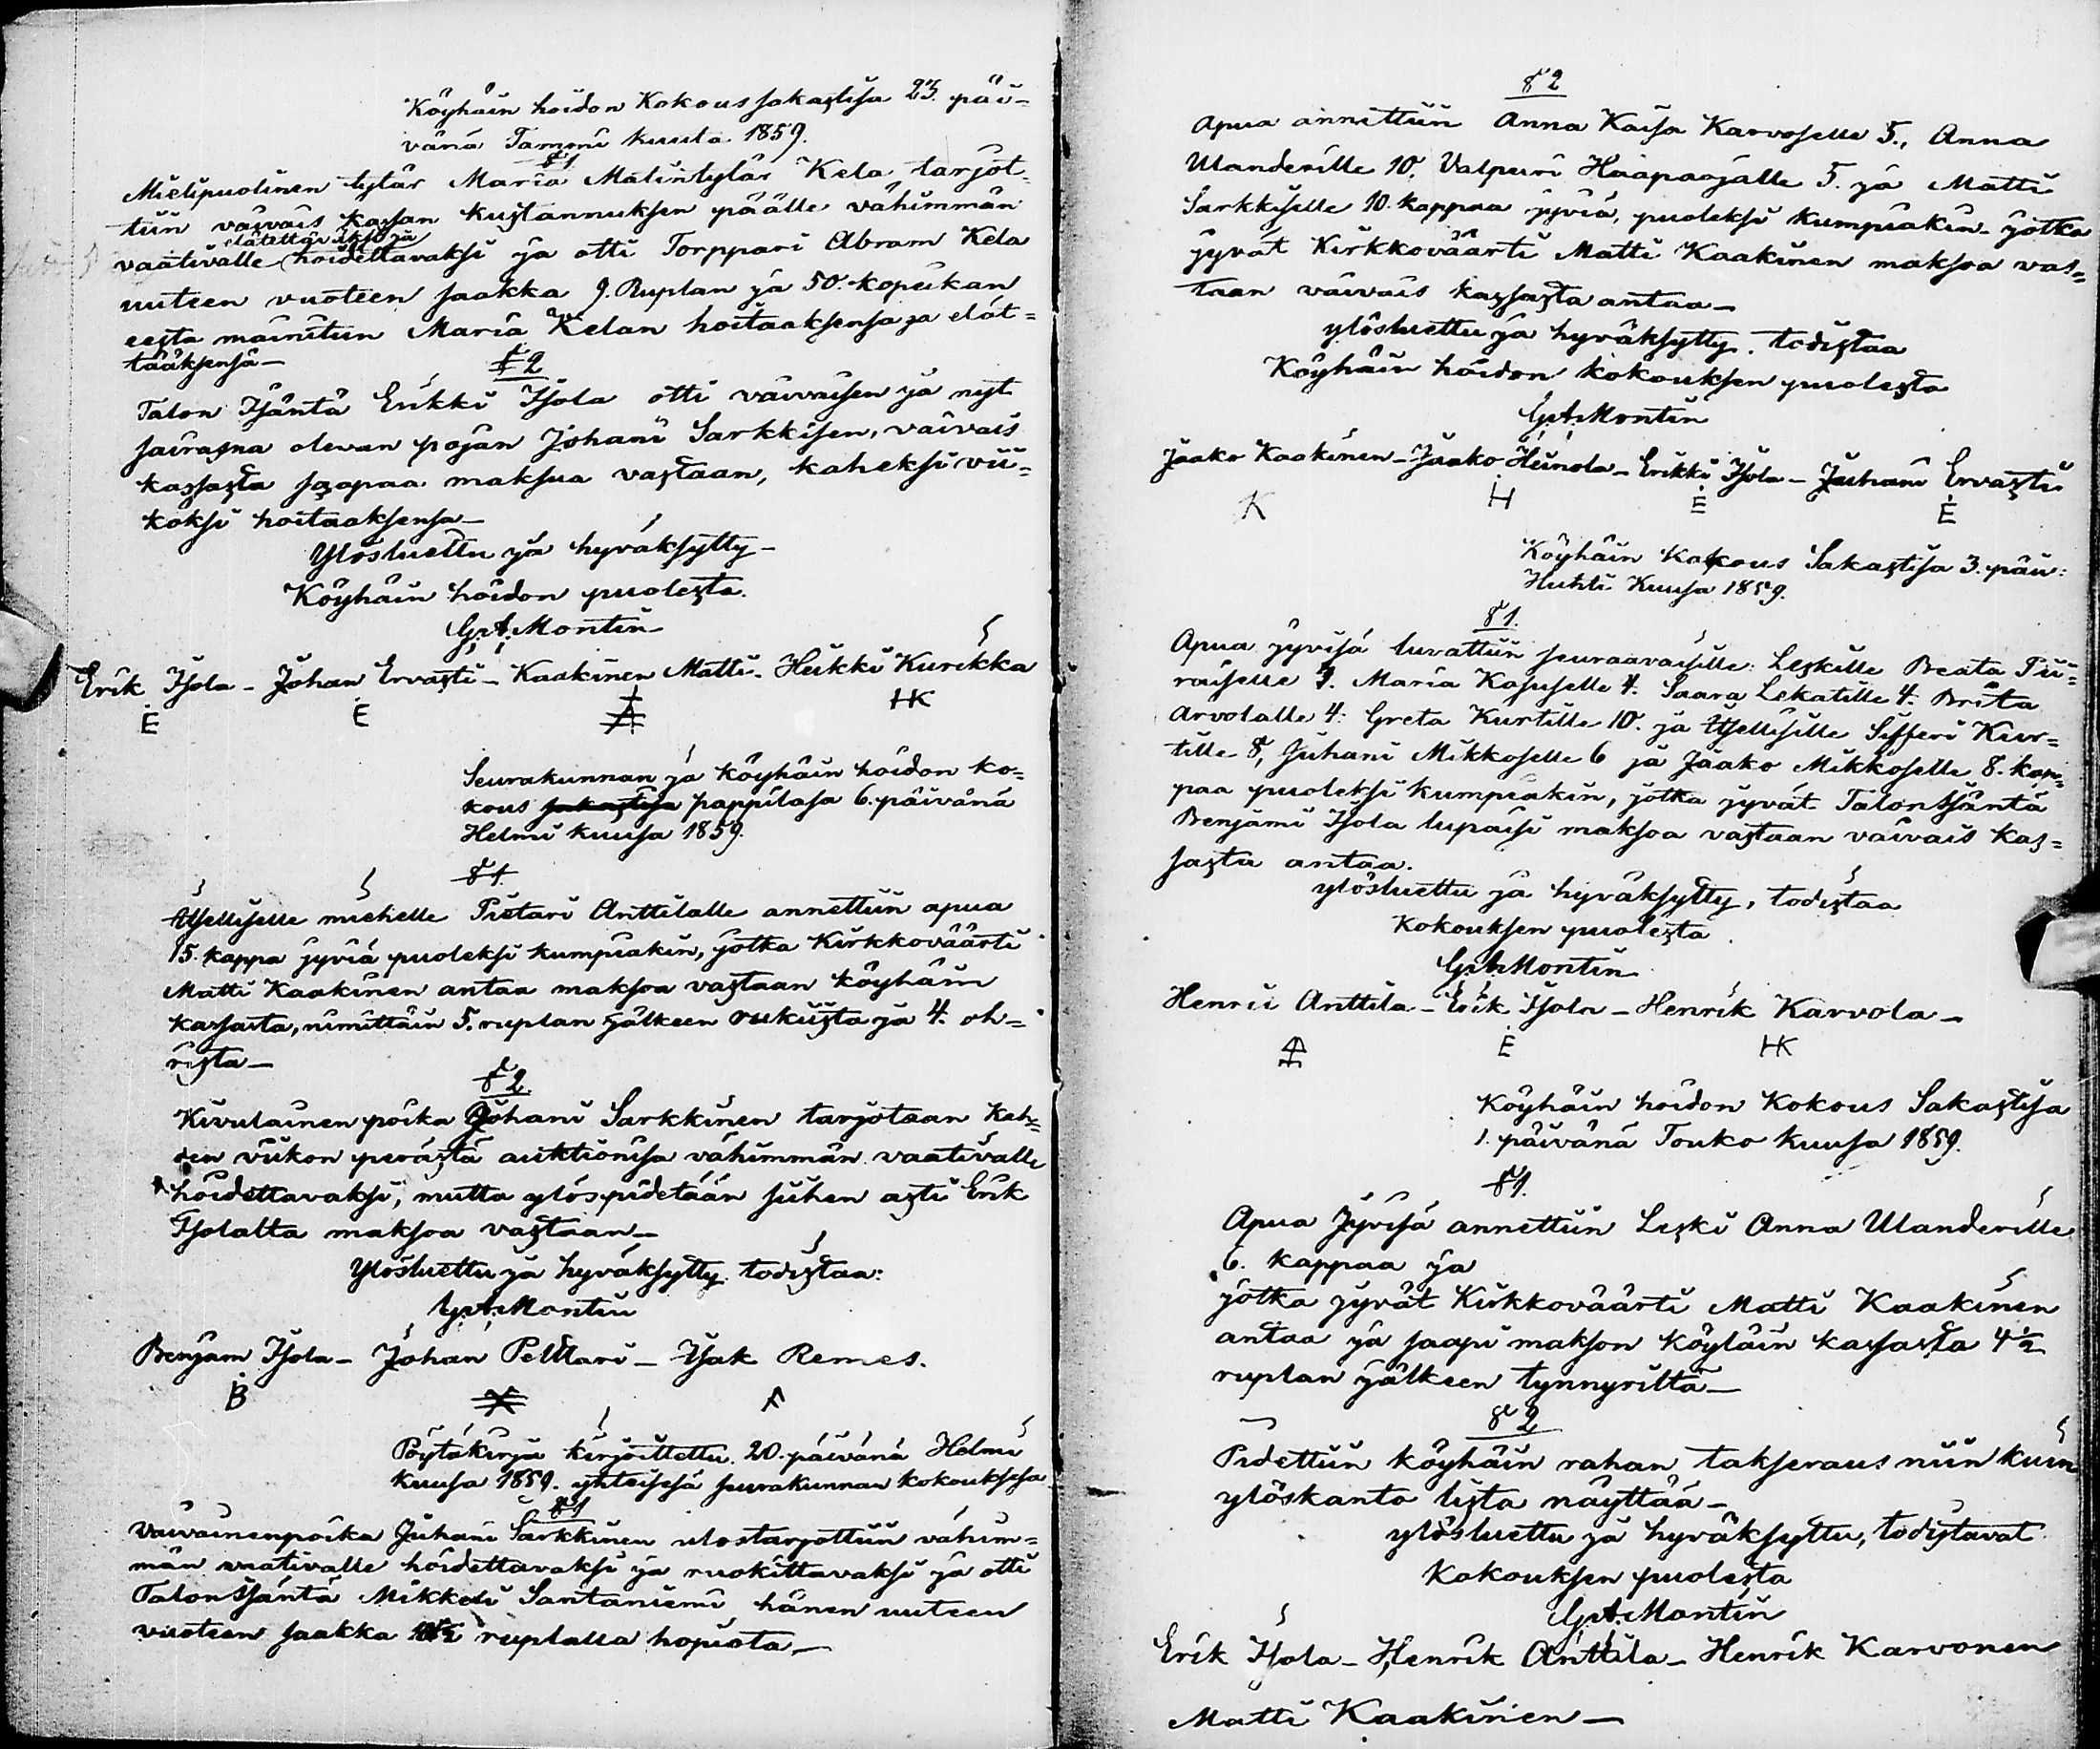 Köyhäin hoidon Kokous sakastisa 23. päi=
vänä Tammi kuula 1859.
§ 1
Mielipuolinen tytär Maria Matintytär Kela tarjot=
tiin vaivais kassan kustannuksen päälle vähimmän
elätettäväksi ja
vaativalle hoidettavaksi ja otti Torppari Abram Kela
uuteen vuoteen saakka 9. Ruplan ja 50. kopeikan
eesta mainitun Maria Kelan hoitaaksensa ja elät=
tääksensä—
§ 2
Talon Isäntä Erikki Isola otti vaivaisen ja nyt
sairasna olevan pojan Johani Sarkkisen, vaivais
kassasta saapaa maksua vastaan, kaheksi vii=
koksi hoitaaksensa—
Ylösluettu ja hyväksytty—
Köyhäin hoidon puolesta.
G. A. Montin
Erik Isola – Johan Ervasti – Kaakinen Matti. Heikki Kurikka
E E A HK
Seurakunnan ja köyhäin hoidon ko=
kous sakastisa pappilasa 6. päivänä
Helmi kuusa 1859.
§ 1.
Itselliselle miehelle Pietari Anttilalle annettiin apua
15. kappa jyviä puoleksi kumpiakin, jotka Kirkkoväärti
Matti Kaakinen antaa maksoa vastaan köyhäin
kassasta, nimittäin 5. ruplan jälkeen rukiista ja 4. oh=
rista—
§ 2.
Kivulainen poika Johani Sarkkinen tarjotaan kah=
den viikon perästä auktionisa vähimmän vaativalle
hoidettavaksi, mutta ylöspidetään siihen asti Erik
Isolalta maksoa vastaan—
Ylösluettu ja hyväksytty todistaa:
G. A. Montin
Benjam Isola – Johan Pelttari – Isak Remes.
B
Pöytäkirja kirjoitettu 20. päivänä Helmi
kuusa 1859. yhteisesä seurakunnan kokouksesa
§ 1
Vaivainenpoika Juhani Sarkkinen ulostarjottiin vähim=
män vaativalle hoidettavaksi ja ruokittavaksi ja otti
Talon Isäntä Mikkeli Santaniemi hänen uuteen
vuoteen saakka ruplalla hopiata—
§ 2
Apua annettiin Anna Kaisa Karvoselle 5., Anna
Ulanderille 10, Valpuri Haapaojalle 5. ja Matti
Sarkkiselle 10. kappaa jyviä, puoleksi kumpiakin jotka
jyvät Kirkkoväärti Matti Kaakinen maksoa vas=
taan vaivais kassasta antaa—
ylösluettu ja hyväksytty. todistaa
Köyhäin hoidon kokouksen puolesta
G. A. Montin
Jaako Kaakinen – Jaako Heinola – Erikki Isola – Juhani Ervasti
K H E E
Köyhäin kokous Sakastisa 3. päiv:
Huhti Kuusa 1859.
§ 1.
Apua jyvisä luvattiin seuraavaisille: Leskille Beata Tii=
raiselle 7. Maria Kasuselle 4. Saara Lekatille 4. Brita
Arvolalle 4: Greta Kurtille 10. ja Itsellisille Sifferi Kur=
tille 8, Juhani Mikkoselle 6 ja Jaako Mikkoselle 8. kap=
paa puoleksi kumpiakin, jotka jyvät Talon Isäntä
Benjami Isola lupaisi maksoa vastaan vaivais kas=
sasta antaa.
ylösluettu ja hyväksytty, todistaa
Kokouksen puolesta
G. A. Montin
Henrii Anttila – Erik Isola – Henrik Karvola—
A E HK
Köyhäin hoidon Kokous Sakastisa
1. päivänä Touko kuusa 1859.
§ 1.
Apua Jyvisä annettiin Leski Anna Ulanderille
6. kappaa ja
jotka jyvät Kirkkoväärti Matti Kaakinen
antaa ja saapi makson köyhäin kassasta 4 1/2
ruplan jälkeen tynnyriltä—
§ 2
Pidettiin köyhäin rahan takseraus niin kuin
ylöskanto lista näyttää—
ylösluettu ja hyväksyttu, todistavat
Kokouksen puolesta
G. A. Montin
Erik Isola – Henrik Anttila – Henrik Karvonen
Matti Kaakinen—